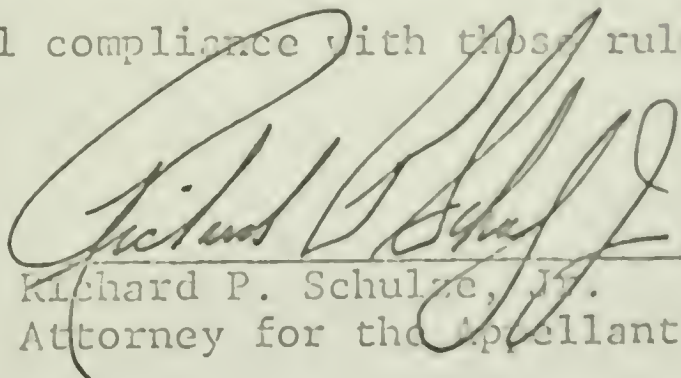 l compliance with those rul
Richard P. Schulze, Jr.
Richard P. Schulze, Jr.
Attorney for the Appellant